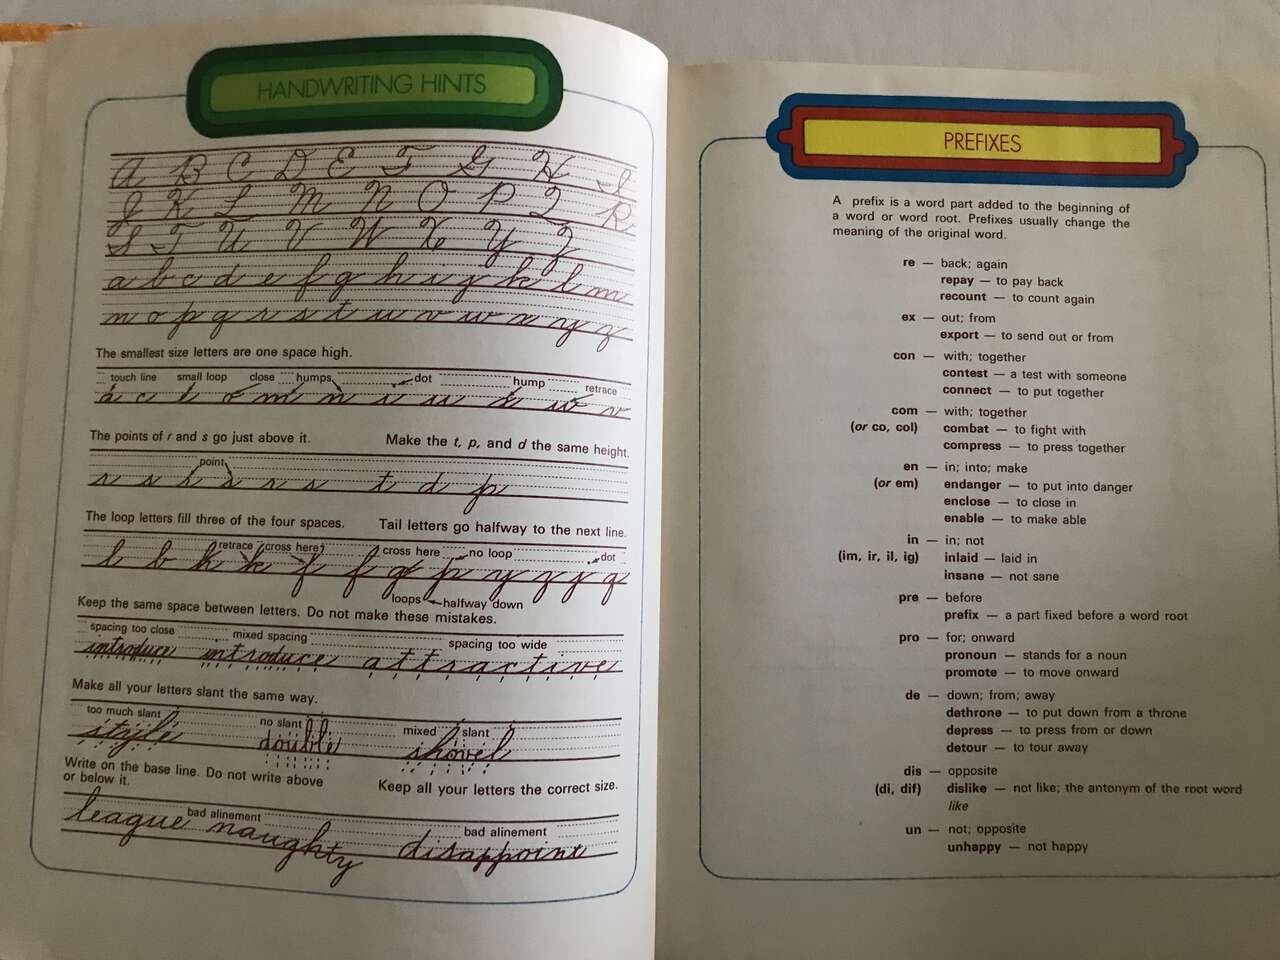 HANDWRITING HINTS
A B C D E F G H I
J K L M N O P Q R
S T U V W X Y Z
a b c d e f g h i j k l m
n o p q r s t u v w x y z
The smallest size letters are one space high.
touch line small loop close humps dot hump retrace
The points of r and s go just above it. Make the t, p, and d the same height.
point
r s s s r s t d p
The loop letters fill three of the four spaces. Tail letters go halfway to the next line.
retrace cross here cross here no loop dot
l b h k f f g p y z j q
loops halfway down
Keep the same space between letters. Do not make these mistakes.
spacing too close mixed spacing spacing too wide
introduce introduce attractive
Make all your letters slant the same way.
too much slant no slant mixed slant
style double shovel
Write on the base line. Do not write above
or below it. Keep all your letters the correct size.
bad alinement bad alinement
league naughty disappoint
PREFIXES
A prefix is a word part added to the beginning of
a word or word root. Prefixes usually change the
meaning of the original word.
re — back; again
repay — to pay back
recount — to count again
ex — out; from
export — to send out or from
con — with; together
contest — a test with someone
connect — to put together
com — with; together
(or co, col) combat — to fight with
compress — to press together
en — in; into; make
(or em) endanger — to put into danger
enclose — to close in
enable — to make able
in — in; not
(im, ir, il, ig) inlaid — laid in
insane — not sane
pre — before
prefix — a part fixed before a word root
pro — for; onward
pronoun — stands for a noun
promote — to move onward
de — down; from; away
dethrone — to put down from a throne
depress — to press from or down
detour — to tour away
dis — opposite
(di, dif) dislike — not like; the antonym of the root word
like
un — not; opposite
unhappy — not happy